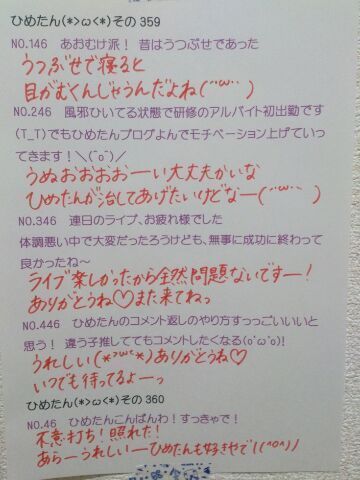 ひめたん(*>ω<*)その359
NO.146　あおむけ派！ 昔はうつぶせであった
うつぶせで寝ると
目がむくんじゃうんだよね(´･ω･｀)
NO.246　風邪ひいてる状態で研修のアルバイト初出勤です
(T_T)でもひめたんブログよんでモチベーション上げていっ
てきます！＼(^o^)／
うぬおおおおーい大丈夫かいな
ひめたんが治してあげたいけどなー(´･ω･｀)
NO.346　連日のライブ、お疲れ様でした
体調悪い中で大変だったろうけども、無事に成功に終わって
良かったね～
ライブ楽しかったから全然問題ないですー！
ありがとうね♡また来てねっ
NO.446　ひめたんのコメント返しのやり方すっっごいいいと
思う！ 違う子推しててもコメントしたくなる(o'ω'o)!
うれしい(*>ω<*)ありがとうね♡
いつでも待ってるよーっ
ひめたん(*>ω<*)その360
NO.46　ひめたんこんばんわ！すっきゃで！
不意打ち！照れた！
あらーうれしいーひめたんも好きやで！(^o^)ﾉ